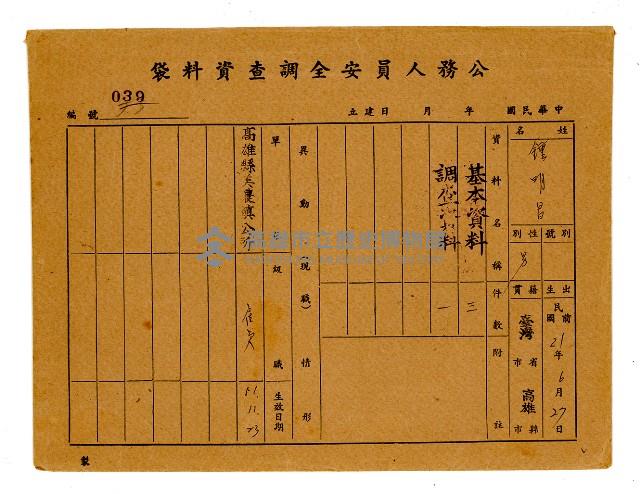 公務人員安全調查資料袋
編號 039
中華民國 年 月 日建立
姓名
鍾明昌
別號
性別
男
出生
民前國
21年6月27日
籍貫
臺灣省市
高雄縣市
資料名稱
件數
附註
基本資料
三
調查資料
一
異動(現職)情形
單
級職
生效日期
高雄縣
公所
雇員
51.11.23
高雄市立歷史博物館
製